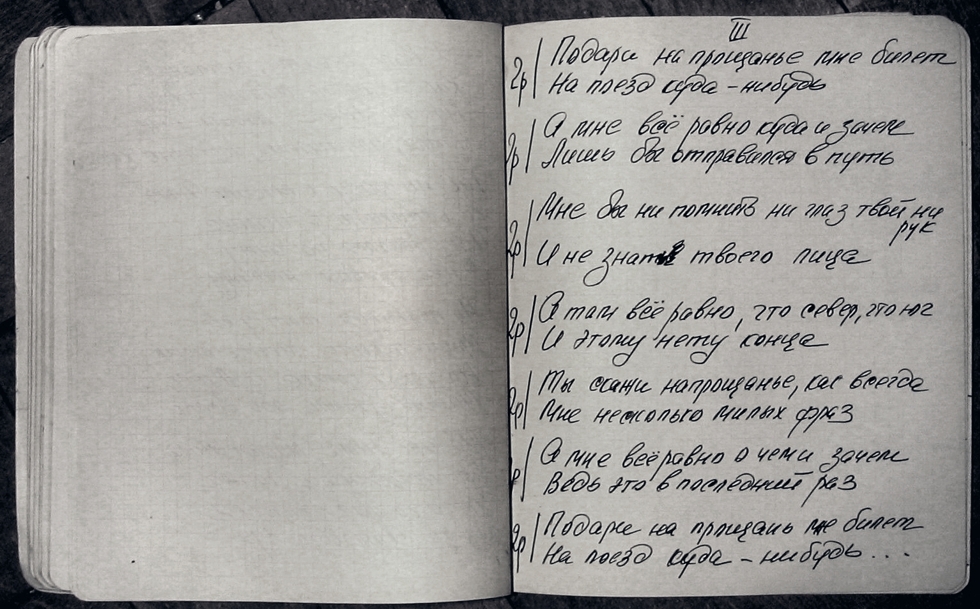 III
2р | Подари на прощанье мне билет
На поезд куда-нибудь
2р | А мне всё равно куда и зачем
Лишь бы отправился в путь
2р | Мне бы ни помнить ни глаз твой ни
рук
И не знать твоего лица
2р | А там всё равно, что север, что юг
И этому нету конца
2р | Ты скажи напрощанье, как всегда
Мне несколько милых фраз
2р | А мне всё равно о чем и зачем
Ведь это в последний раз
2р | Подари на прощань мне билет
На поезд куда-нибудь...